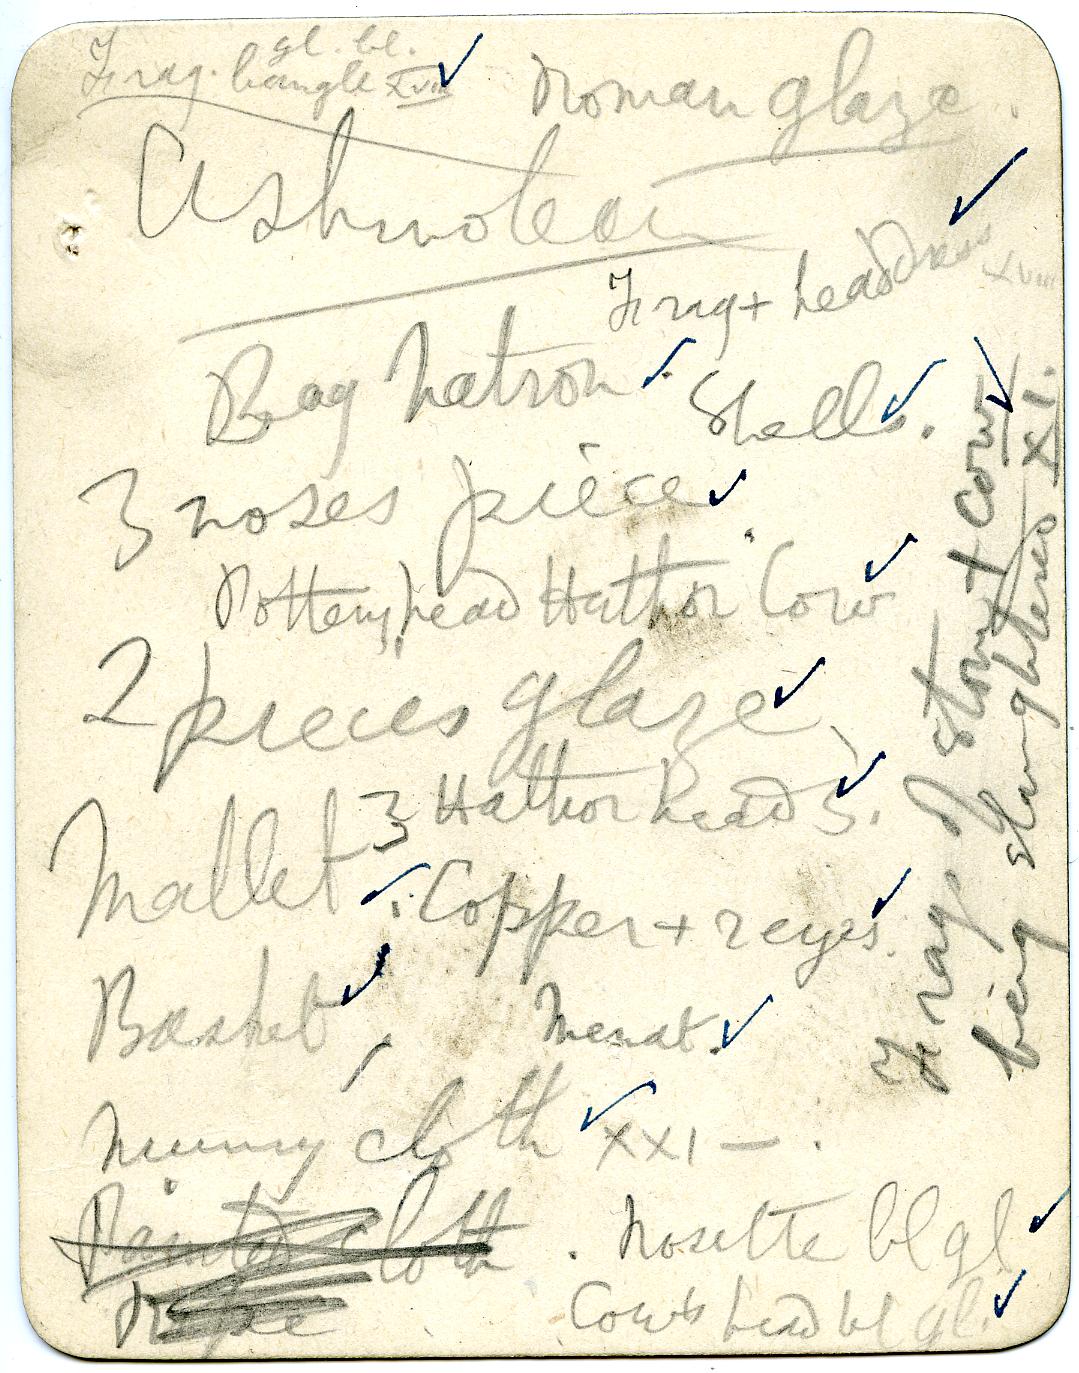 gl. bl.
Frag. bangle XVIII
Roman glaze.
Ashmolean
Frag + headdress
XVIII
Bag Natron. Shells.
3 noses piece.
Pottery head Hathor Cow
2 pieces glaze
3 Hathor heads.
Mallet. Copper + 2 eyes.
Basket, Menat.
Mummy cloth XXI — .
Painted cloth
. Rosette bl gl
Rope
Cow's head bl gl.
Frag. of stone + cow
being slaughtered XI.